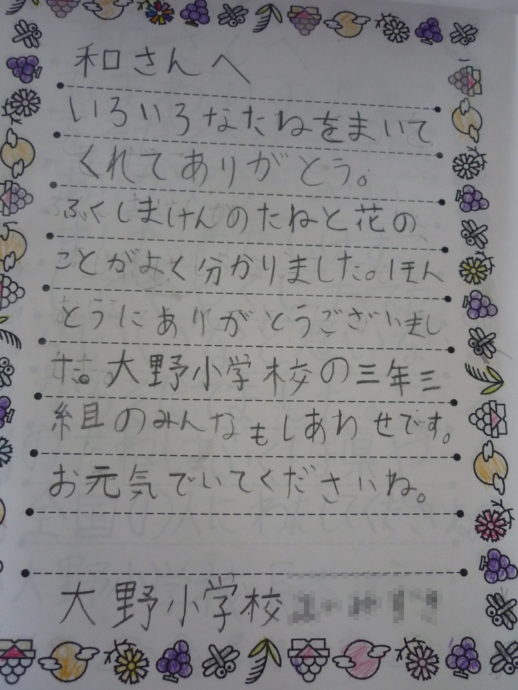 和さんへ
いろいろなたねをまいて
くれてありがとう。
ふくしまけんのたねと花の
ことがよく分かりました。ほん
とうにありがとうございまし
た。大野小学校の三年三
組のみんなもしあわせです。
お元気でいてくださいね。
大野小学校